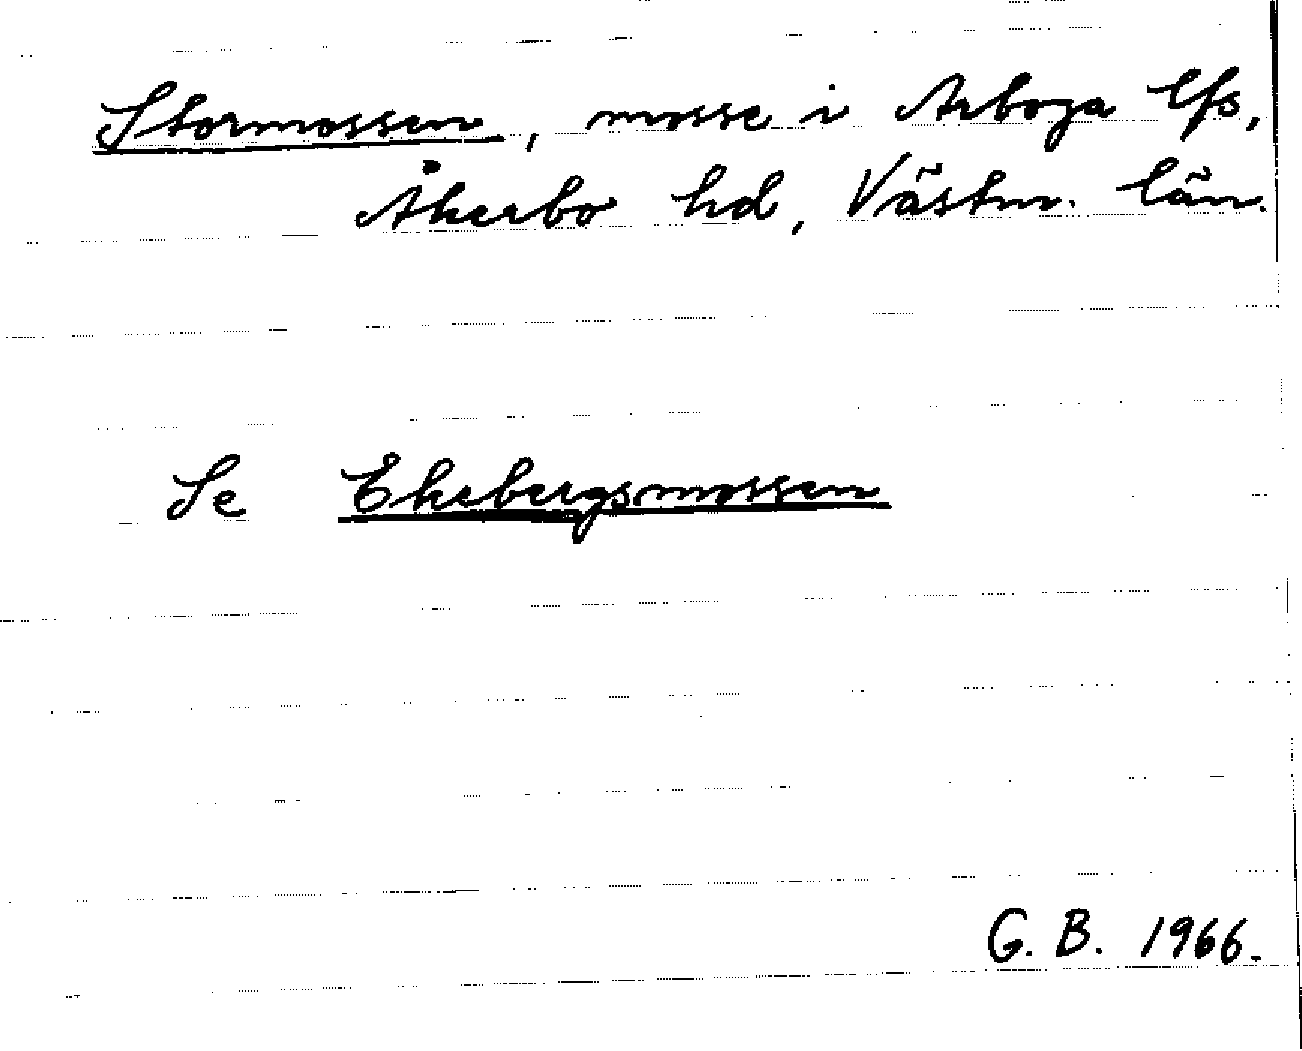 Stormossen, mosse i Arboga lfs,
Åkerbo hd, Västm. län.
Se Ekebergsmossen
G. B. 1966.